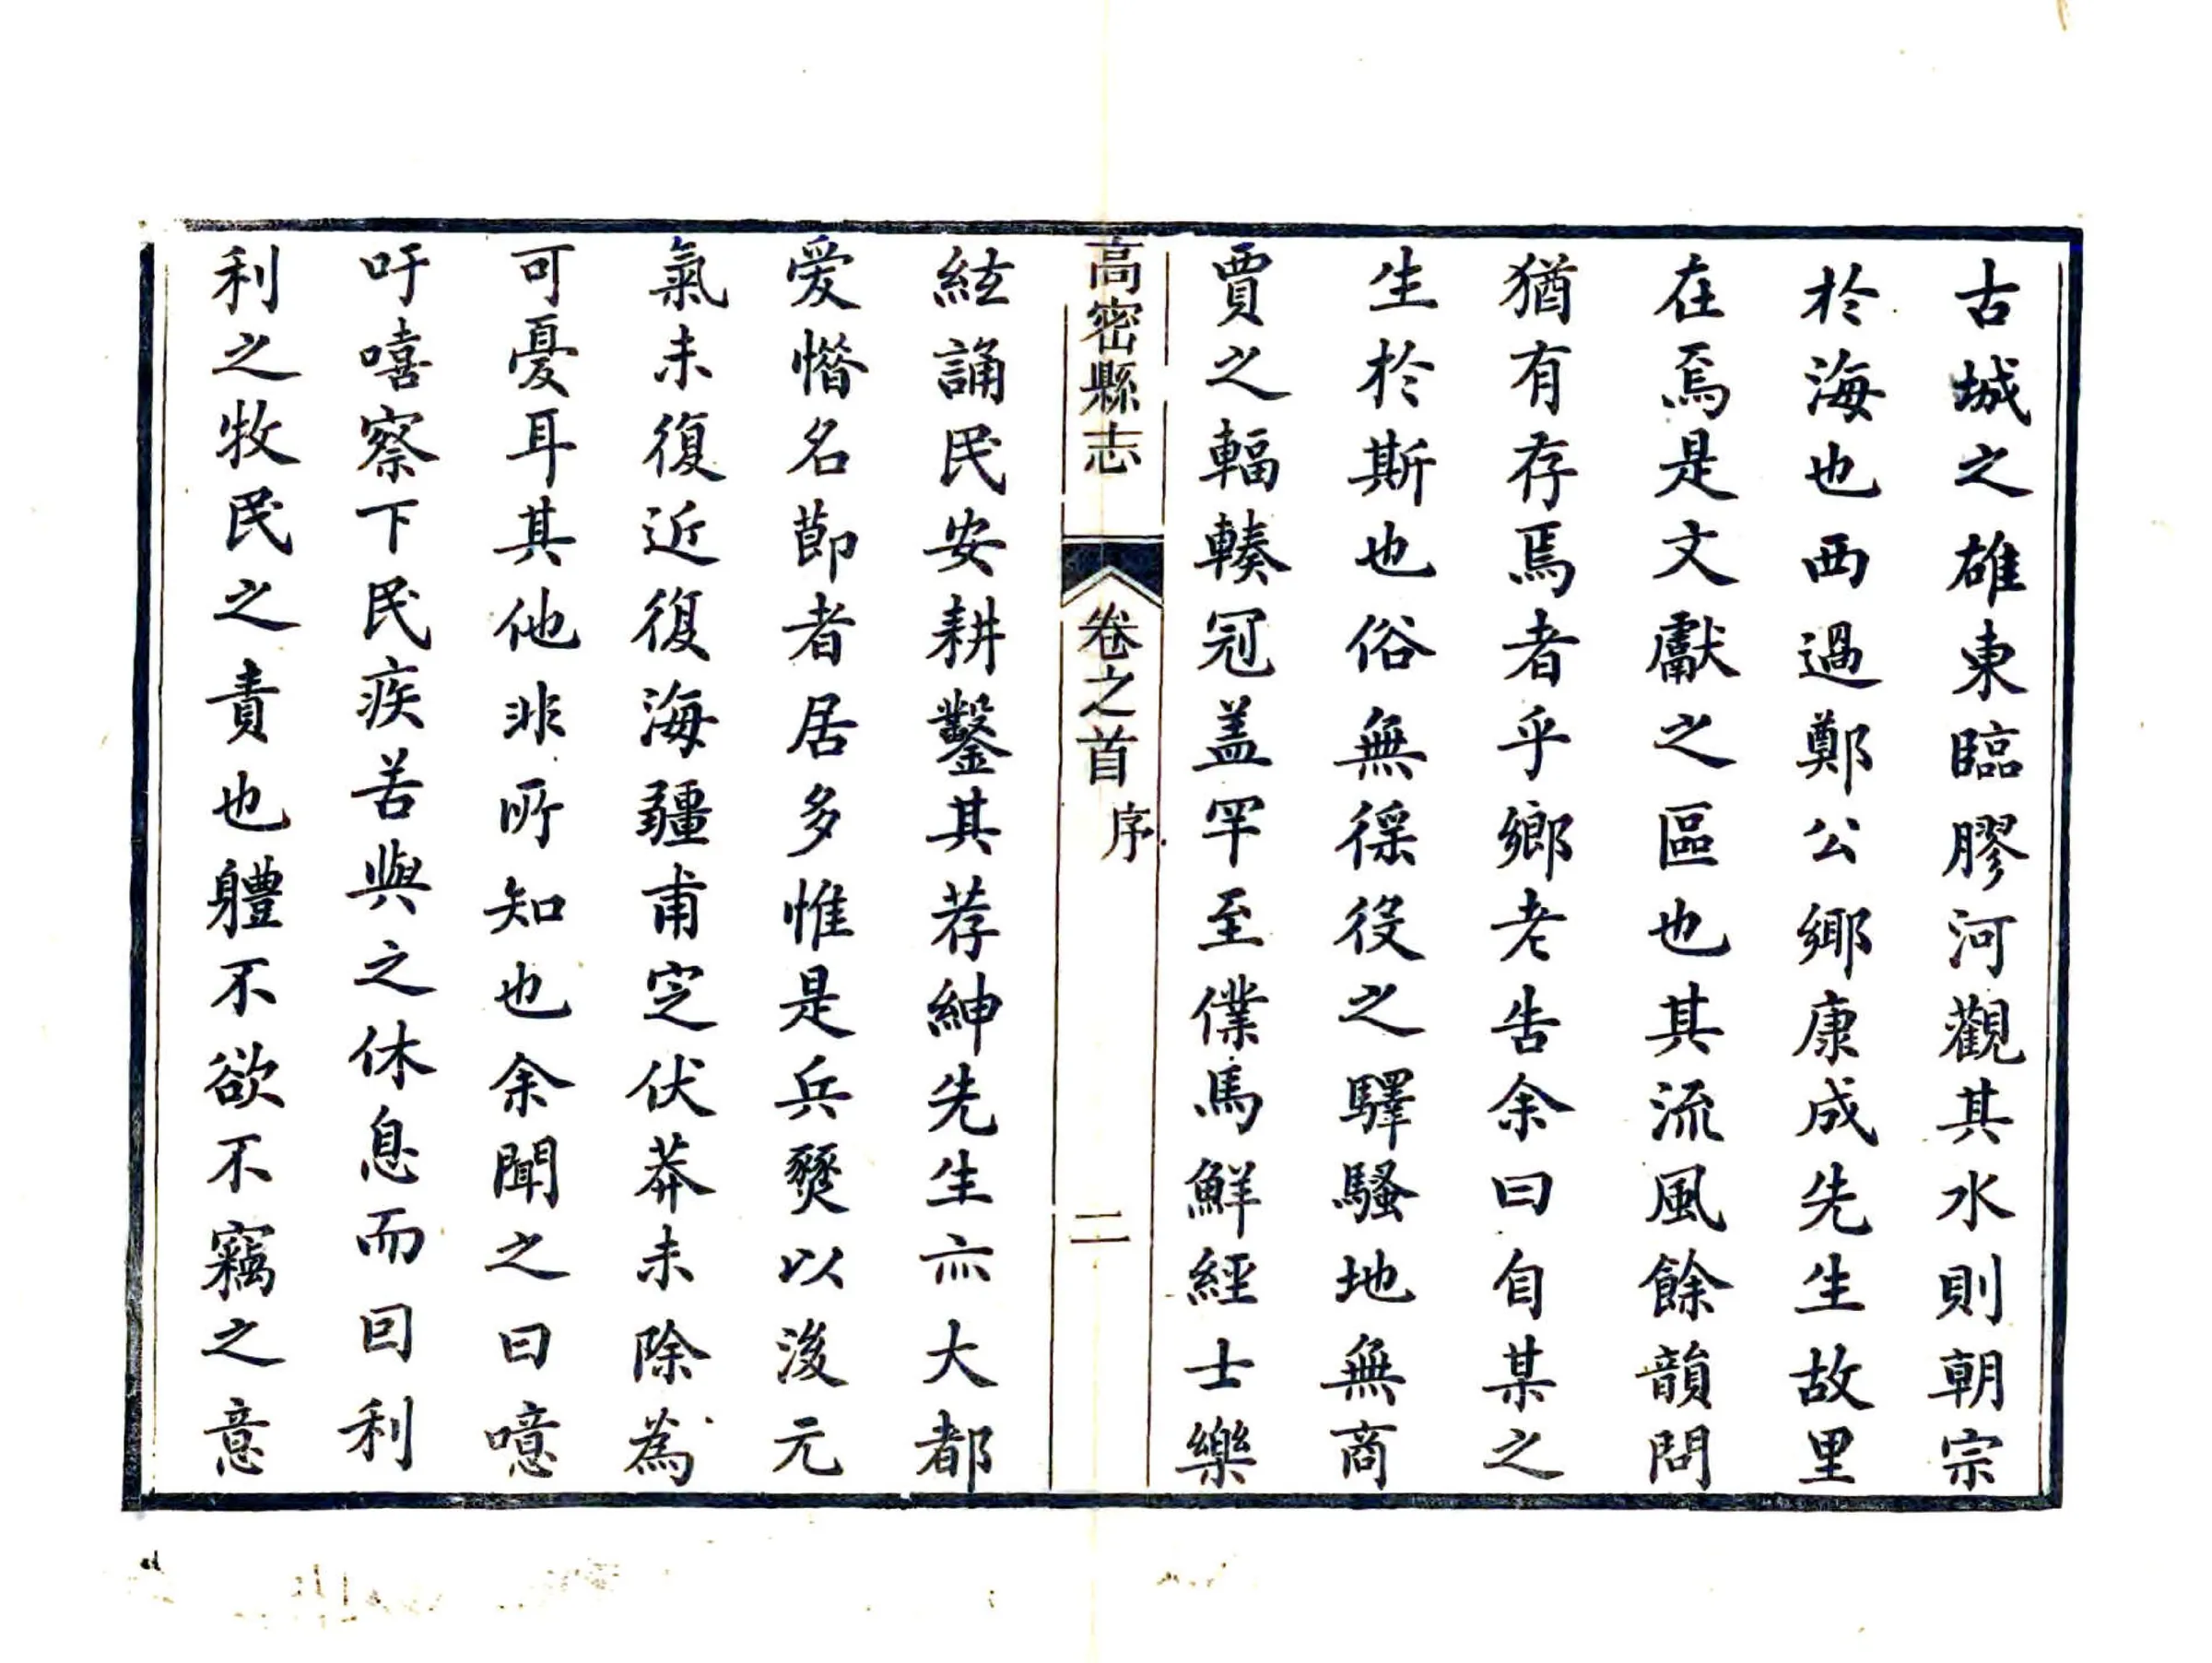 古城之雄東臨膠河觀其水則朝宗
於海也西過鄭公鄉康成先生故里
在焉是文獻之區也其流風餘韻問
猶有存焉者乎鄉老告余曰自某之
生於斯也俗無徭役之驛騷地無商
賈之輻輳冠盖罕至僕馬鮮經士樂
高密縣志 卷之首 序 二
絃誦民安耕鑿其荐紳先生亦大都
爱惜名節者居多惟是兵燹以後元
氣未復近復海疆甫定伏莽未除為
可憂耳其他非所知也余聞之曰噫
吁嘻察下民疾苦與之休息而曰利
利之牧民之責也軆不欲不竊之意